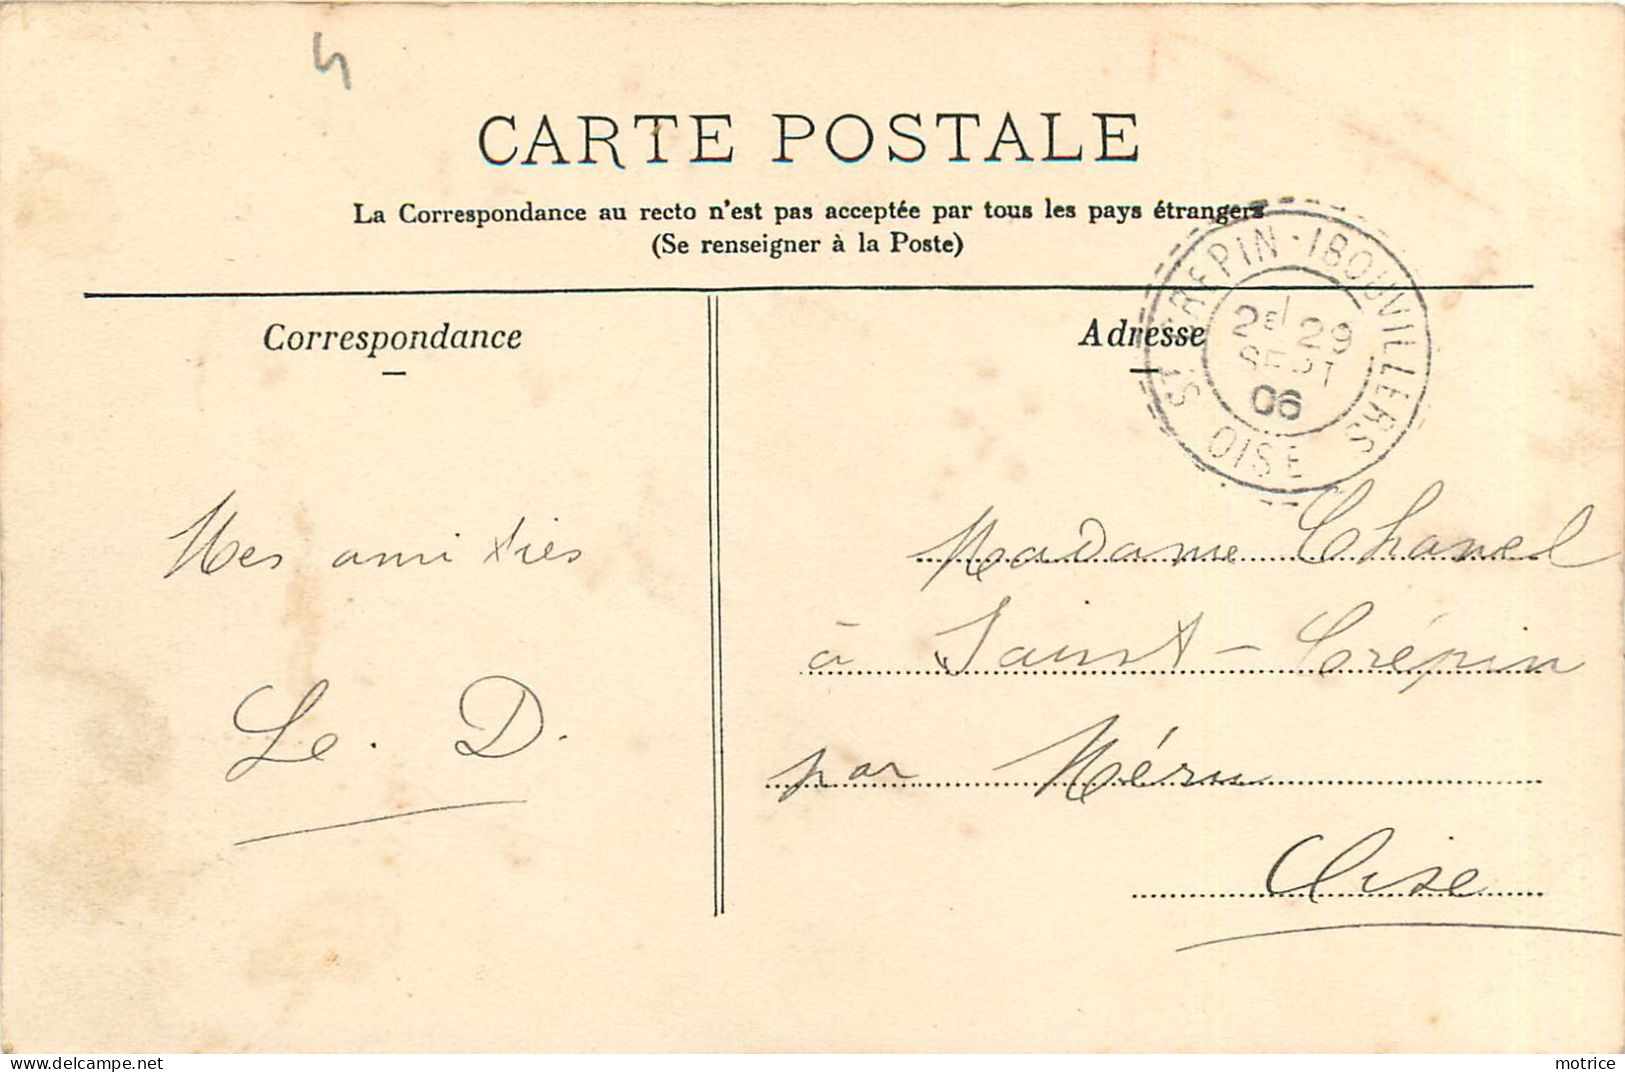 4
CARTE POSTALE
La Correspondance au recto n'est pas acceptée par tous les pays étrangers
(Se renseigner à la Poste)
Correspondance
Adresse
ST CREPIN - IBOUVILLERS
2E 29
SEPT
06
OISE
Mes amitiés
Le. D.
Madame Chanel
à Saint-Crépin
par Méru
Oise
motrice